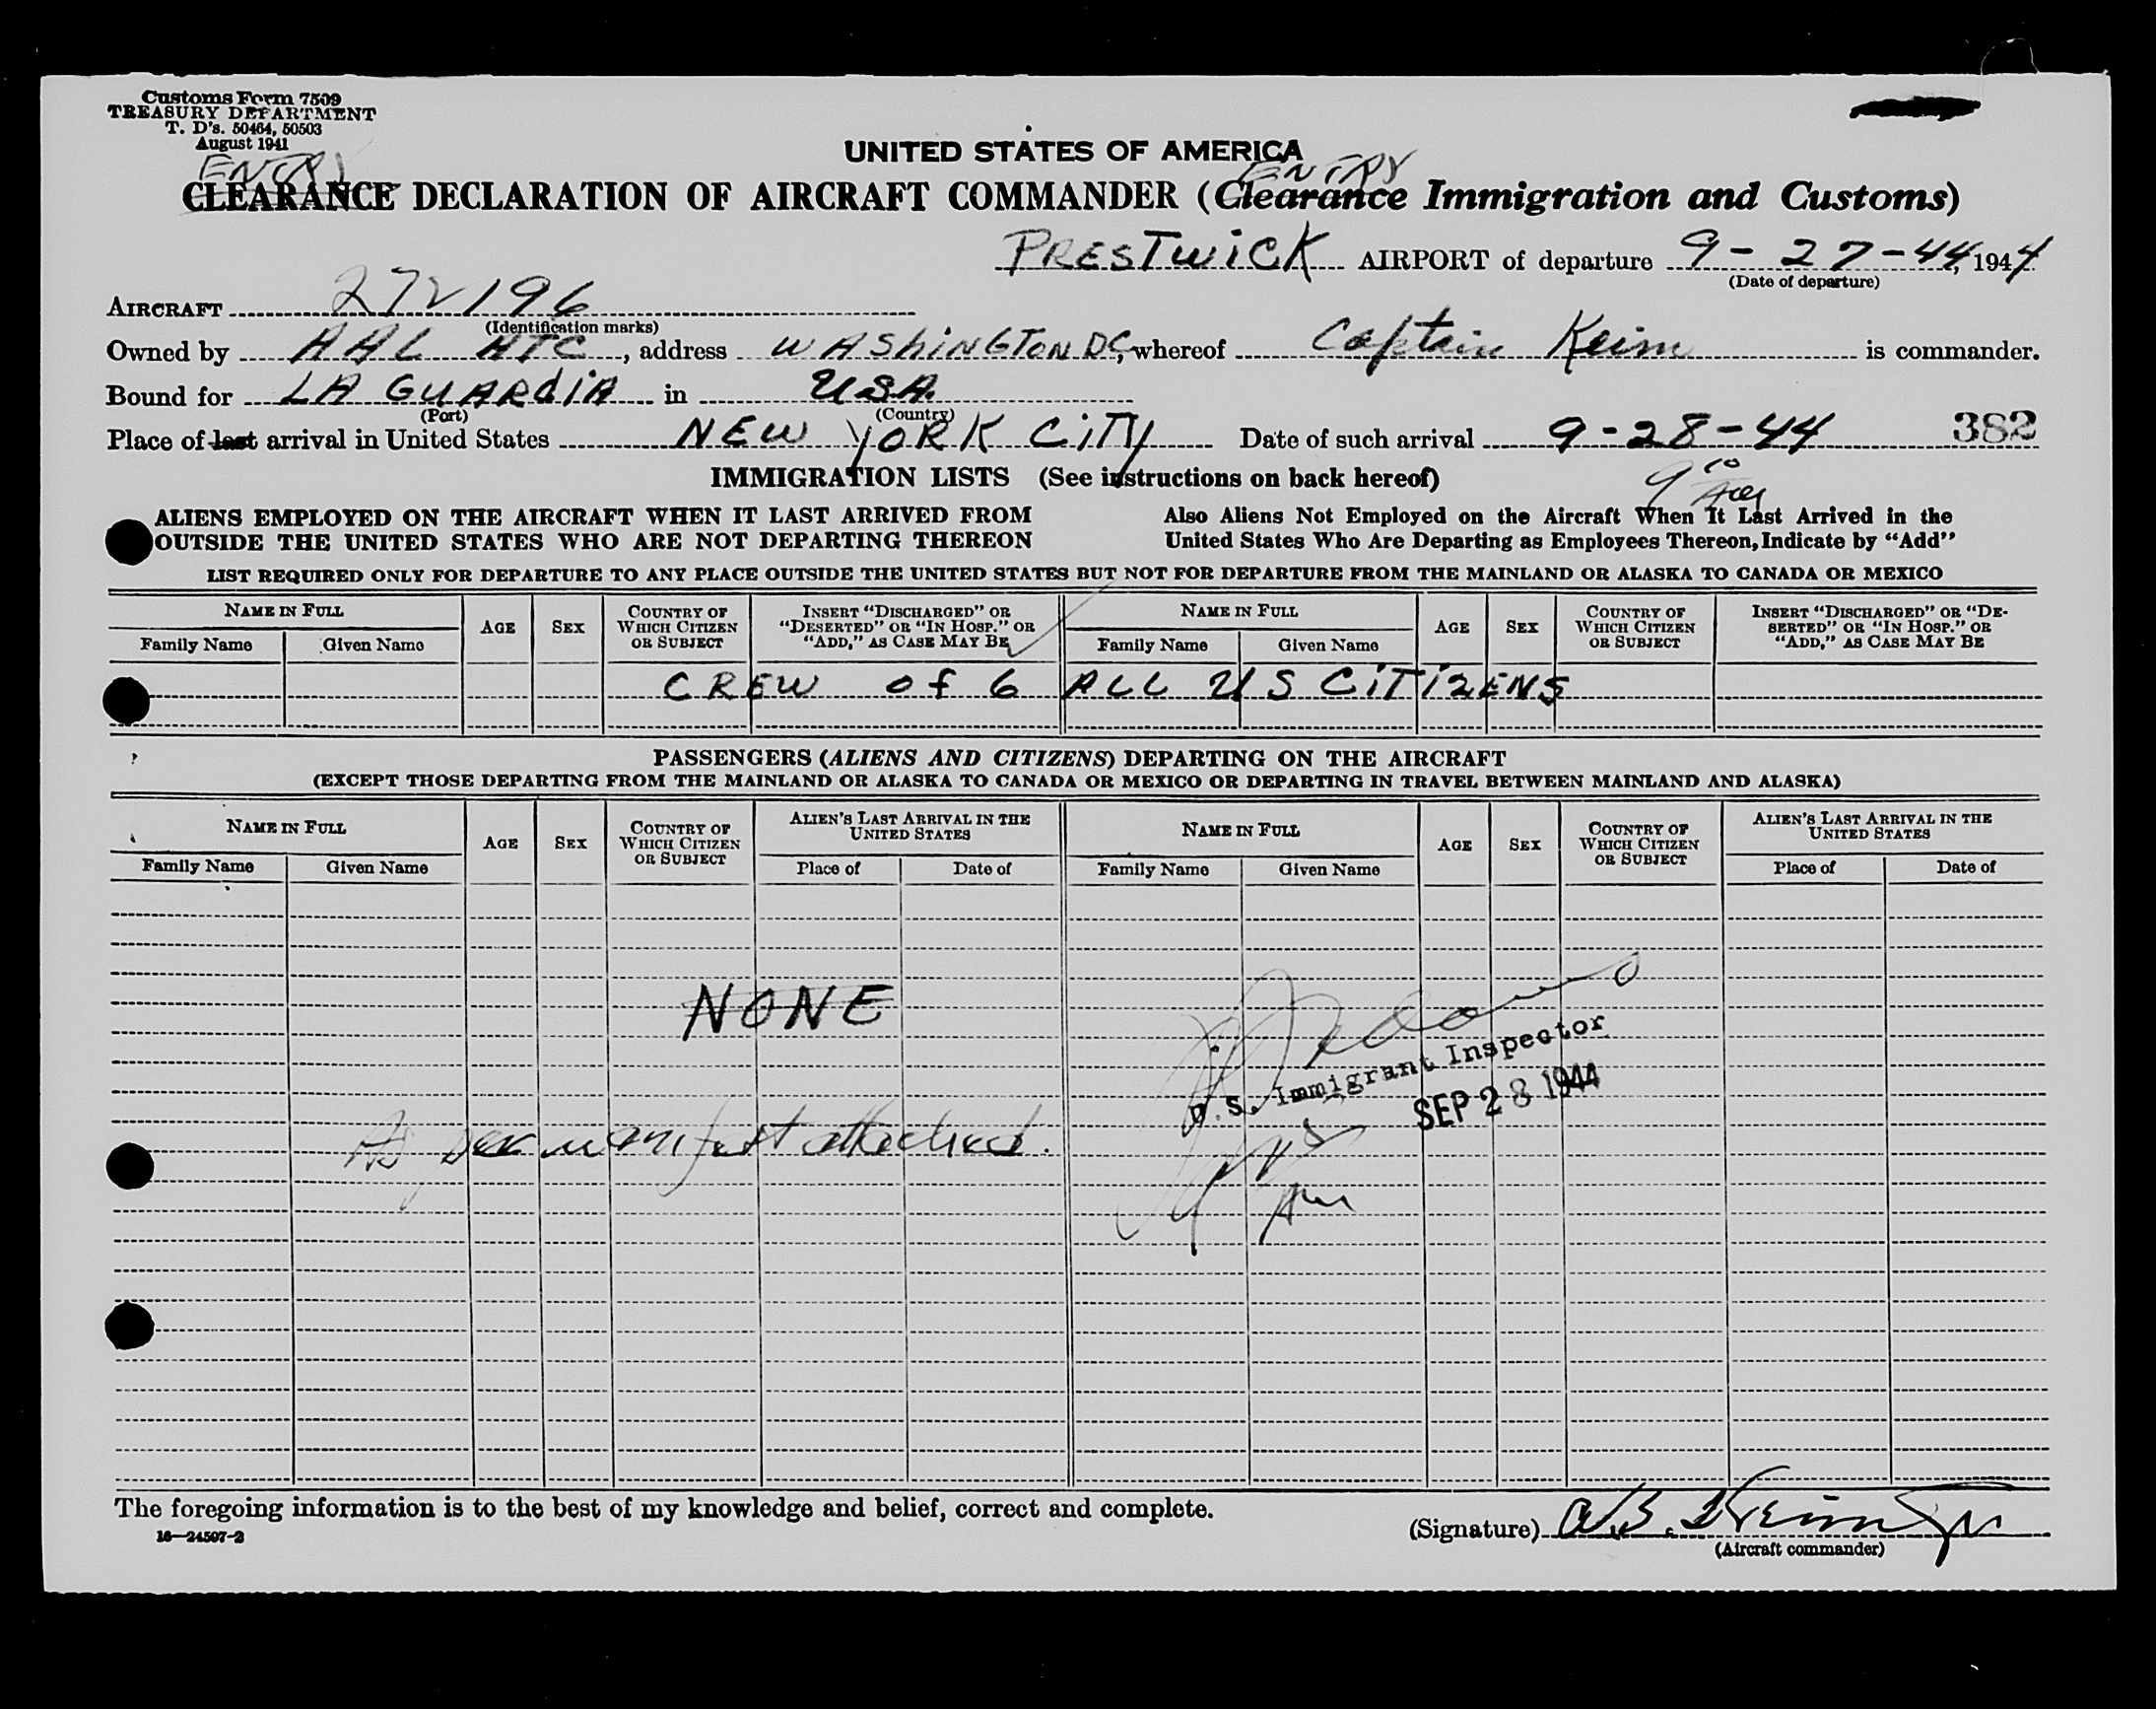 Customs Form 7509
TREASURY DEPARTMENT
T. D's. 50464, 50503
August 1941
UNITED STATES OF AMERICA
ENTRY ENTRY
CLEARANCE DECLARATION OF AIRCRAFT COMMANDER (Clearance Immigration and Customs)
PRESTWICK AIRPORT of departure 9-27-44, 1944
(Date of departure)
AIRCRAFT 272196
(Identification marks)
Owned by AAL ATC, address WASHINGTON DC, whereof Captain Keim is commander.
Bound for LA GUARDIA in USA.
(Port) (Country)
Place of last arrival in United States NEW YORK CITY Date of such arrival 9-28-44 382
IMMIGRATION LISTS (See instructions on back hereof) 9 10
ALIENS EMPLOYED ON THE AIRCRAFT WHEN IT LAST ARRIVED FROM
OUTSIDE THE UNITED STATES WHO ARE NOT DEPARTING THEREON
Also Aliens Not Employed on the Aircraft When It Last Arrived in the
United States Who Are Departing as Employees Thereon, Indicate by "Add"
LIST REQUIRED ONLY FOR DEPARTURE TO ANY PLACE OUTSIDE THE UNITED STATES BUT NOT FOR DEPARTURE FROM THE MAINLAND OR ALASKA TO CANADA OR MEXICO
NAME IN FULL
Family Name Given Name
AGE
SEX
COUNTRY OF
WHICH CITIZEN
OR SUBJECT
INSERT "DISCHARGED" OR
"DESERTED" OR "IN HOSP." OR
"ADD," AS CASE MAY BE
NAME IN FULL
Family Name Given Name
AGE
SEX
COUNTRY OF
WHICH CITIZEN
OR SUBJECT
INSERT "DISCHARGED" OR "DE-
SERTED" OR "IN HOSP." OR
"ADD," AS CASE MAY BE
CREW of 6 ALL US CITIZENS
PASSENGERS (ALIENS AND CITIZENS) DEPARTING ON THE AIRCRAFT
(EXCEPT THOSE DEPARTING FROM THE MAINLAND OR ALASKA TO CANADA OR MEXICO OR DEPARTING IN TRAVEL BETWEEN MAINLAND AND ALASKA)
NAME IN FULL
Family Name Given Name
AGE
SEX
COUNTRY OF
WHICH CITIZEN
OR SUBJECT
ALIEN'S LAST ARRIVAL IN THE
UNITED STATES
Place of Date of
NAME IN FULL
Family Name Given Name
AGE
SEX
COUNTRY OF
WHICH CITIZEN
OR SUBJECT
ALIEN'S LAST ARRIVAL IN THE
UNITED STATES
Place of Date of
NONE
U.S. Immigrant Inspector
SEP 28 1944
As per manifest attached.
The foregoing information is to the best of my knowledge and belief, correct and complete.
16—24507-2
(Signature) A.B. Keim Jr
(Aircraft commander)